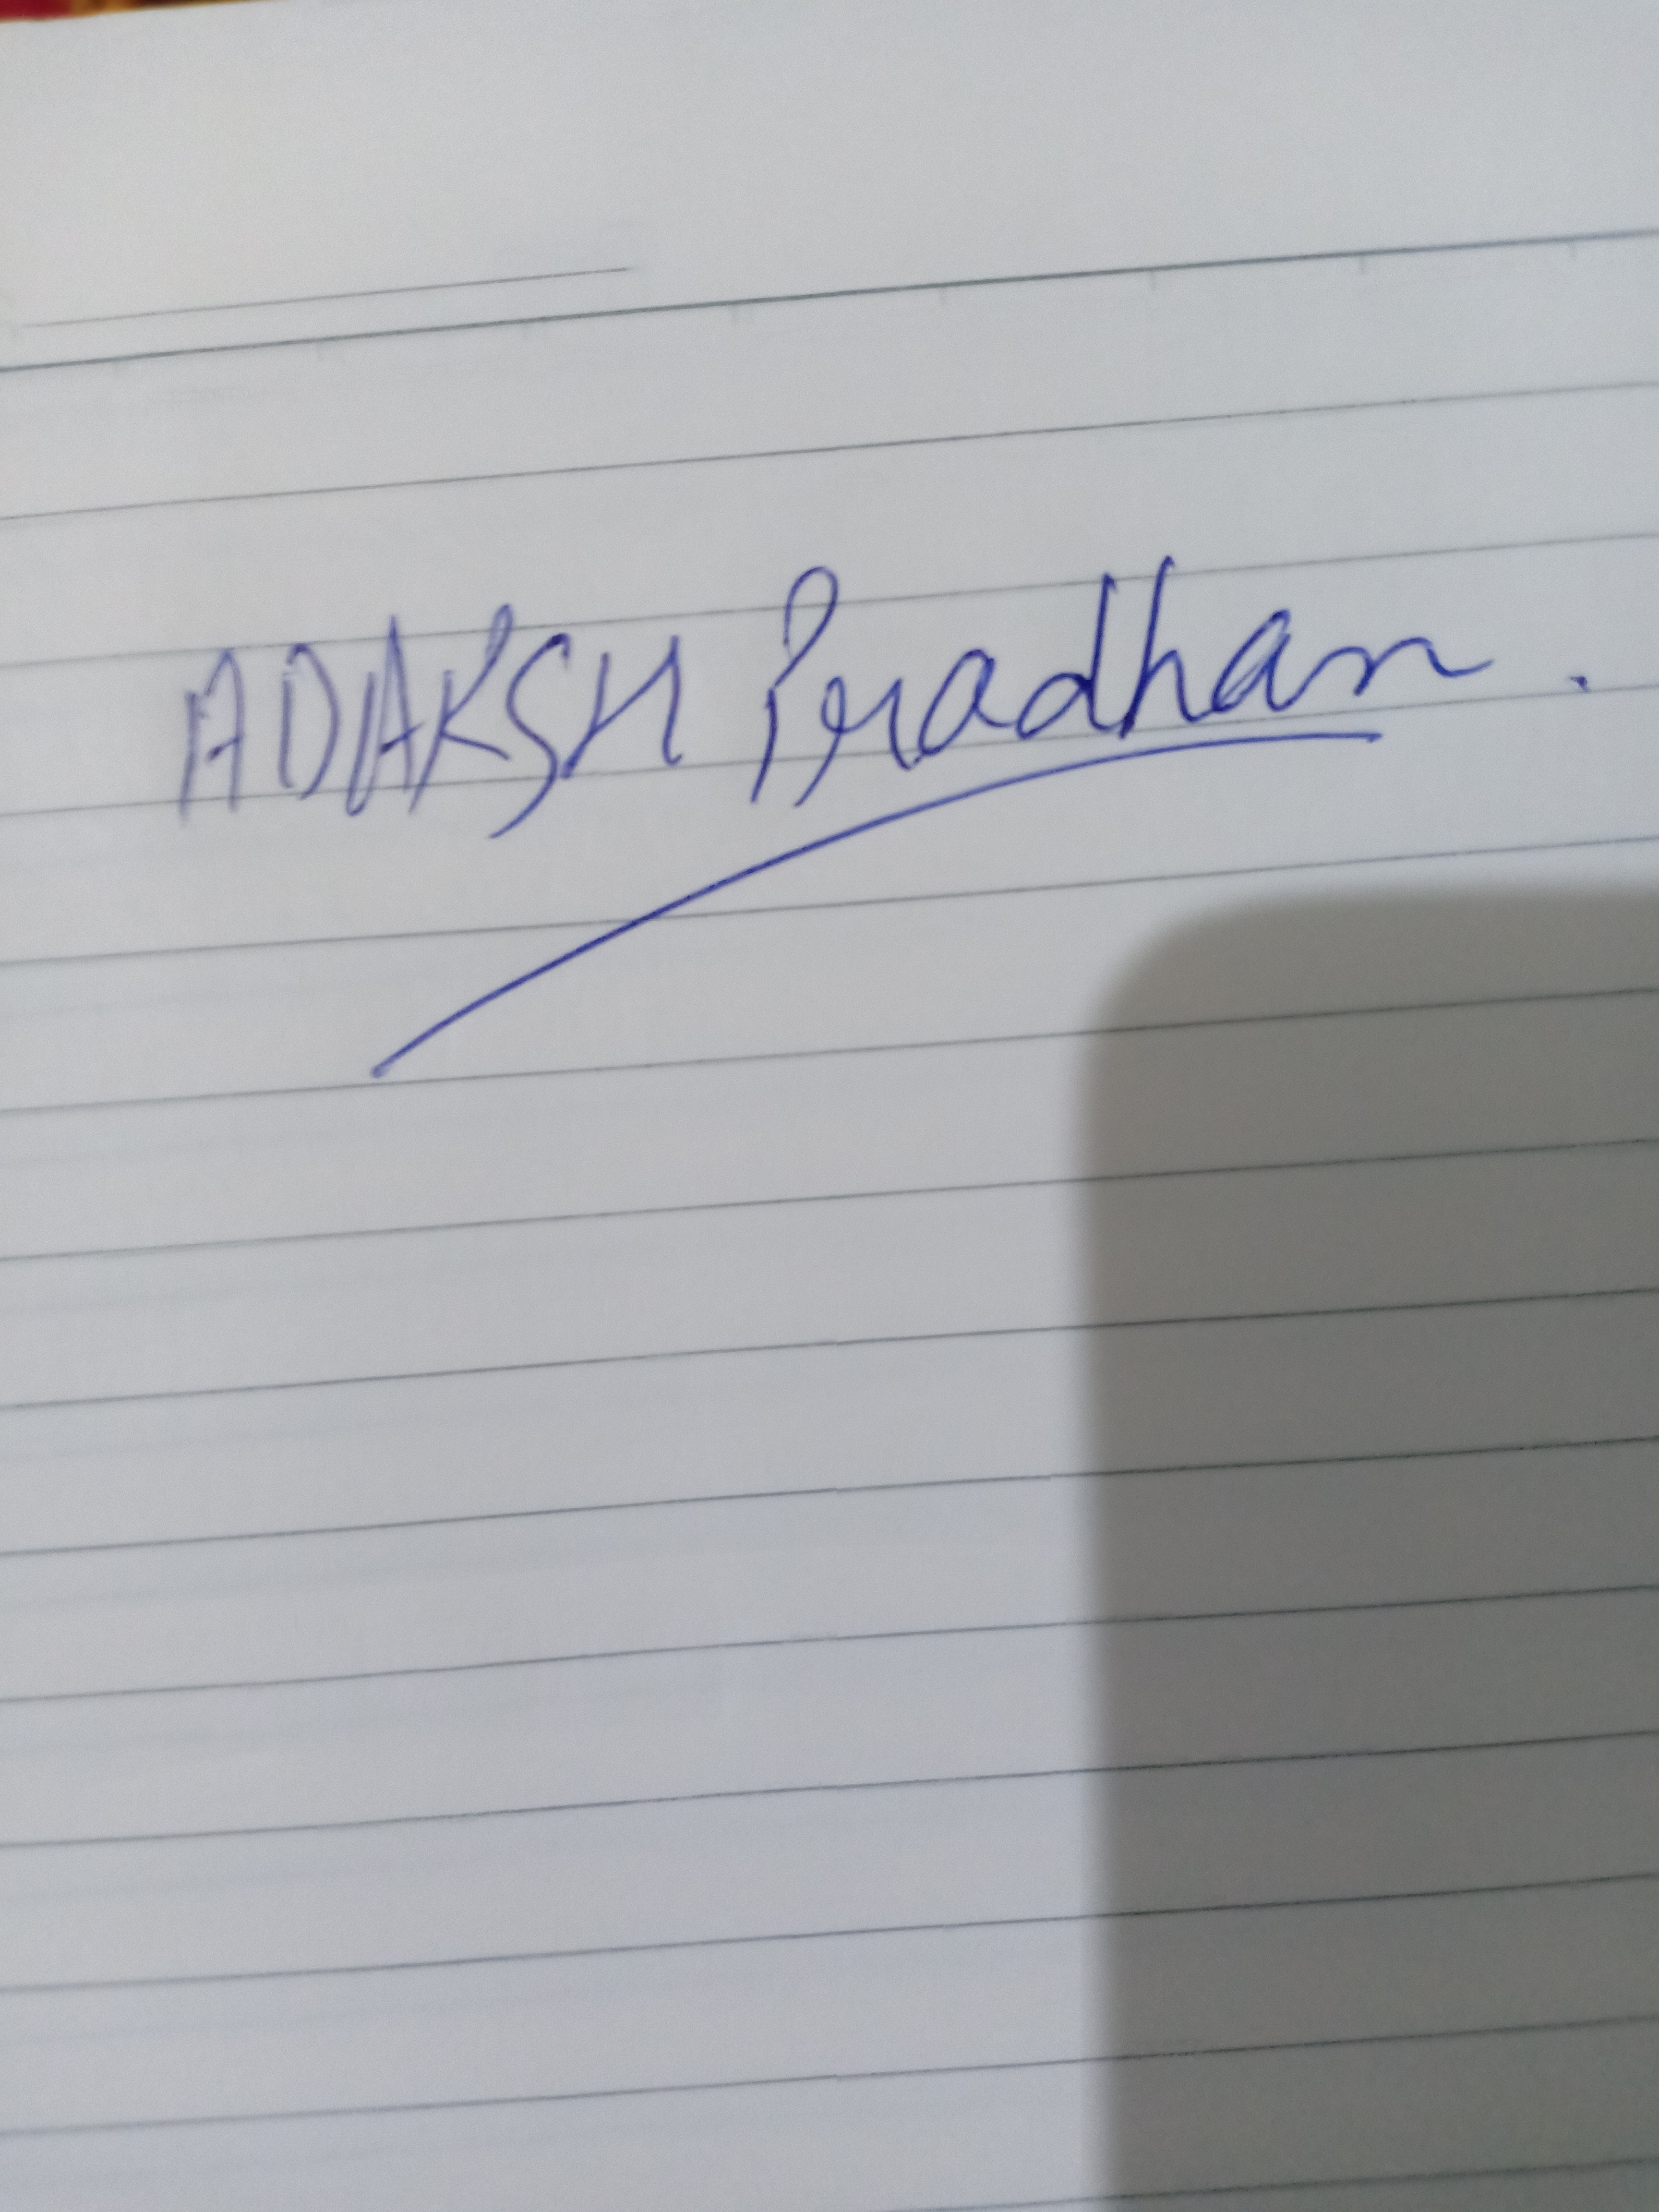 ADAKSH Pradhan.